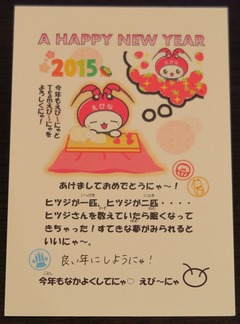 A HAPPY NEW YEAR
2015
今年もえび〜にゃと
Teamえび〜にゃを
よろしくにゃ!
えびな
あけましておめでとうにゃ〜!
ヒツジが一匹、ヒツジが二匹・・・・
ヒツジさんを数えていたら眠くなって
きちゃった!すてきな夢がみられると
いいにゃ〜。
良い年にしようにゃ!
今年もなかよくしてにゃ♡ えび〜にゃ